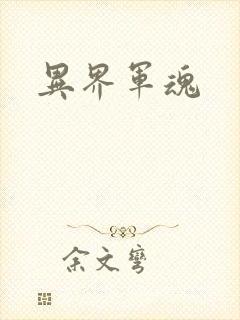 異界軍魂
余文彎